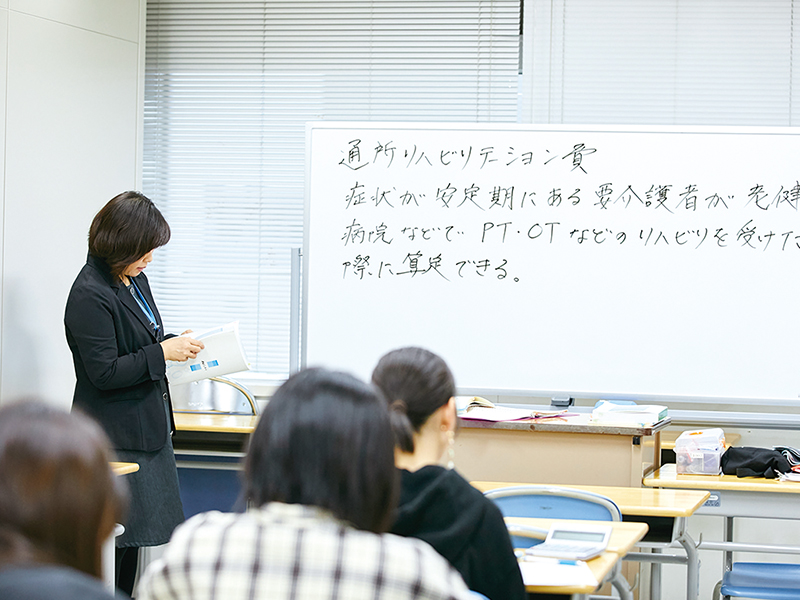 通所リハビリテーション費
症状が安定期にある要介護者が老健
病院などで PT・OTなどのリハビリを受けた
際に算定できる。